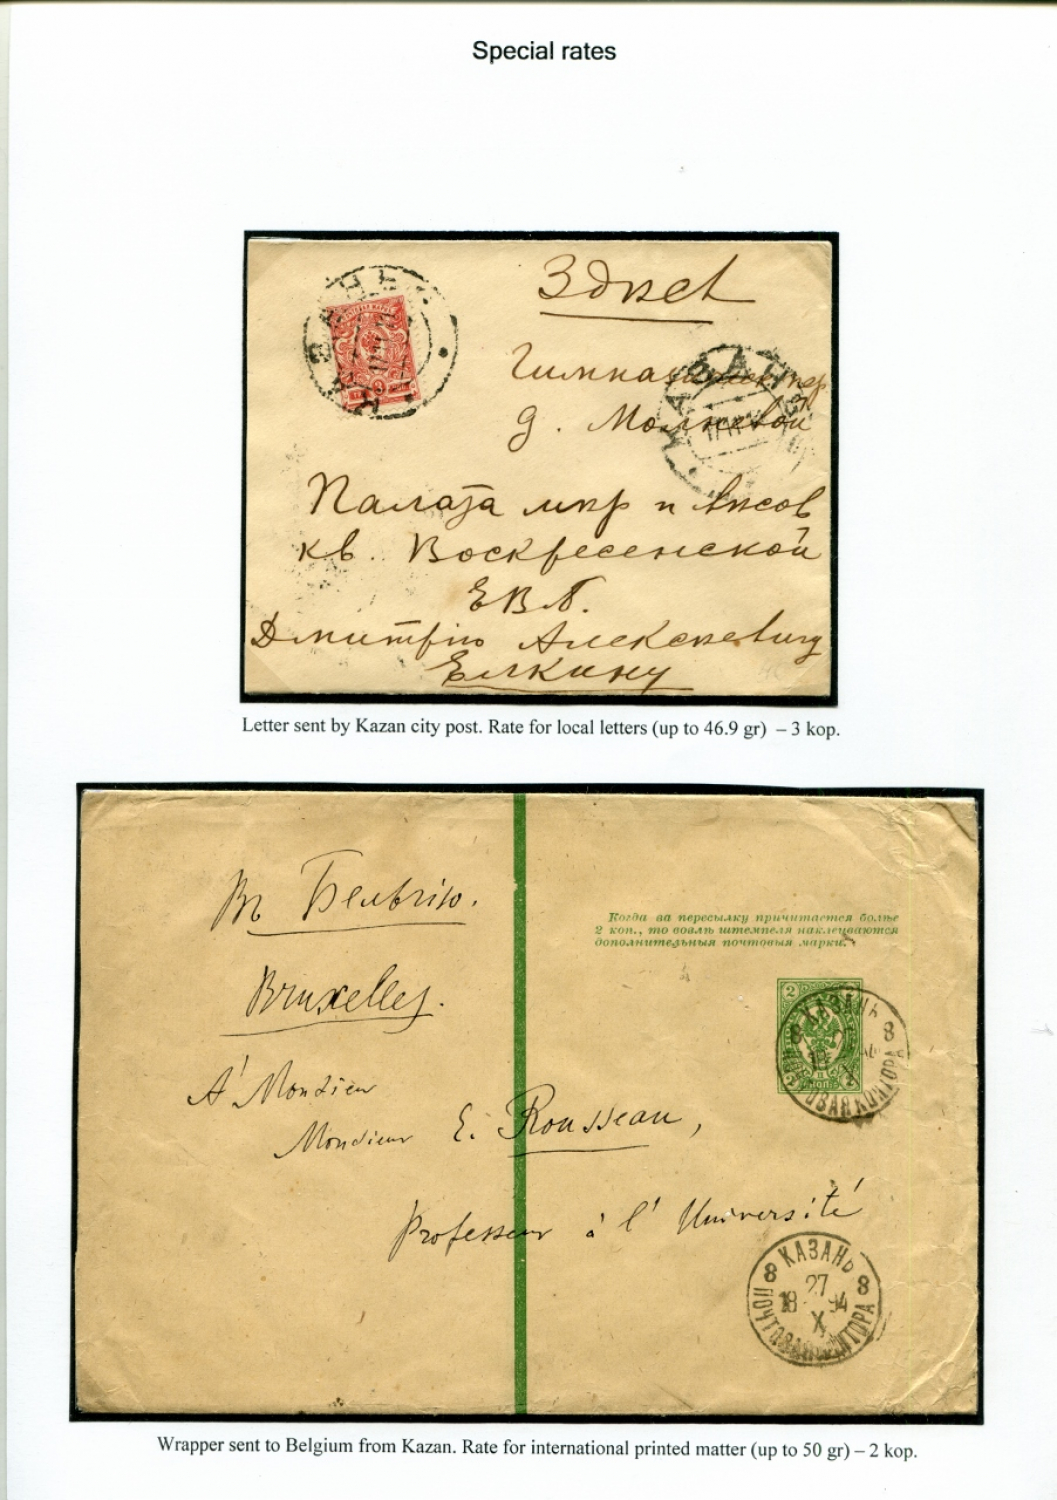 Special rates
КАЗАНЬ
Здѣсь
КАЗАНЬ
д.
Палата мѣр и вѣсов
кв. Воскресенской
ЕВБ.
Дмитрію Алексѣевичу
Елкину
Letter sent by Kazan city post. Rate for local letters (up to 46.9 gr) – 3 kop.
Въ Бельгію.
Когда за пересылку причитается болѣе
2 коп., то возлѣ штемпеля наклеиваются
дополнительныя почтовыя марки.
Bruxelles.
2
КАЗАНЬ
8 8
ПОЧТОВАЯ КОНТОРА
A' Monsieur
Monsieur E. Rousseau,
Professeur à l'Université
КАЗАНЬ
8 27 8
18 94
X
ПОЧТОВАЯ КОНТОРА
Wrapper sent to Belgium from Kazan. Rate for international printed matter (up to 50 gr) – 2 kop.